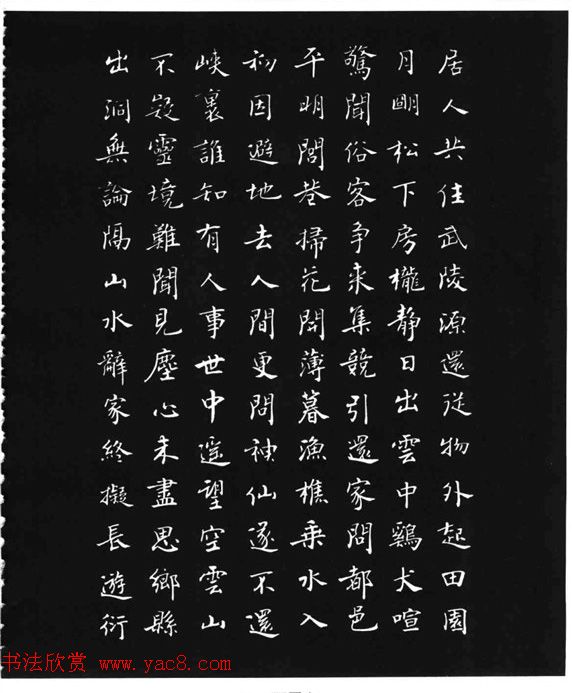 居人共住武陵源還從物外起田園
月朙松下房櫳靜日出雲中鷄犬喧
驚聞俗客争来集競引還家問都邑
平明閭巷掃花開薄暮漁樵乗水入
初因避地去人間更問神仙遂不還
峽裏誰知有人事世中遥望空雲山
不疑靈境難聞見塵心未盡思鄉縣
出洞無論隔山水辭家終擬長遊衍
书法欣赏 www.yac8.com